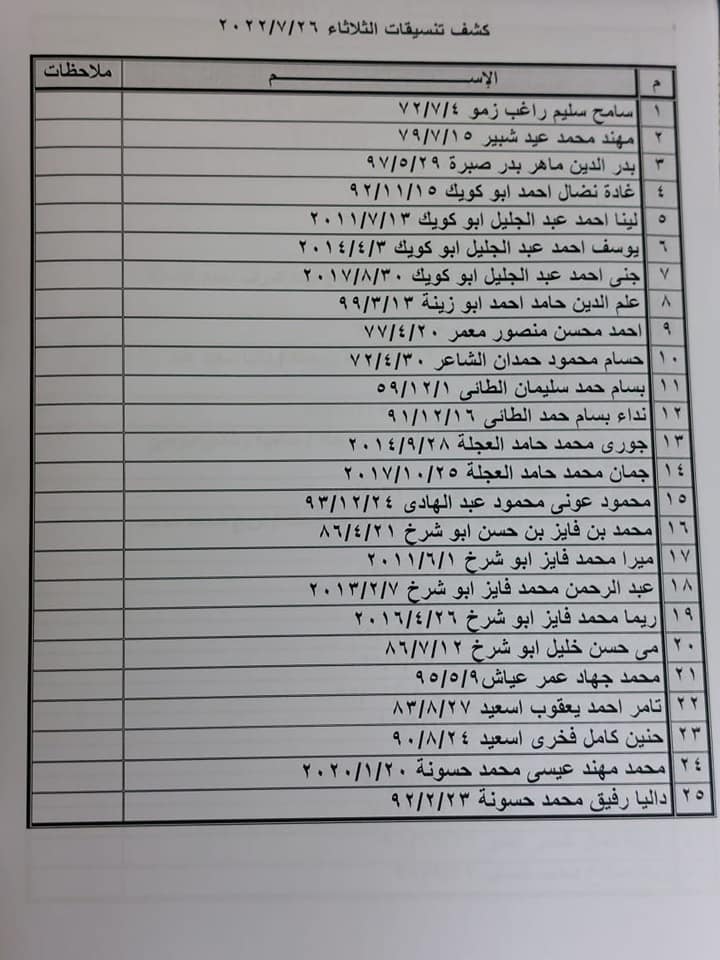 كشف تنسيقات الثلاثاء ٢٠٢٢/٧/٢٦
م الإسم ملاحظات
١ سامح سليم راغب زمو ٧٢/٧/٤
٢ مهند محمد عيد شبير ٧٩/٧/١٥
٣ بدر الدين ماهر بدر صبرة ٩٧/٥/٢٩
٤ غادة نضال احمد ابو كويك ٩٢/١١/١٥
٥ لينا احمد عبد الجليل ابو كويك ٢٠١١/٧/١٣
٦ يوسف احمد عبد الجليل ابو كويك ٢٠١٤/٤/٣
٧ جنى احمد عبد الجليل ابو كويك ٢٠١٧/٨/٣٠
٨ علم الدين حامد احمد ابو زينة ٩٩/٣/١٣
٩ احمد محسن منصور معمر ٧٧/٤/٢٠
١٠ حسام محمود حمدان الشاعر ٧٢/٤/٣٠
١١ بسام حمد سليمان الطائى ٥٩/١٢/١
١٢ نداء بسام حمد الطائى ٩١/١٢/١٦
١٣ جورى محمد حامد العجلة ٢٠١٤/٩/٢٨
١٤ جمان محمد حامد العجلة ٢٠١٧/١٠/٢٥
١٥ محمود عونى محمود عبد الهادى ٩٣/١٢/٢٤
١٦ محمد بن فايز بن حسن ابو شرخ ٨٦/٤/٢١
١٧ ميرا محمد فايز ابو شرخ ٢٠١١/٦/١
١٨ عبد الرحمن محمد فايز ابو شرخ ٢٠١٣/٢/٧
١٩ ريما محمد فايز ابو شرخ ٢٠١٦/٤/٢٦
٢٠ مى حسن خليل ابو شرخ ٨٦/٧/١٢
٢١ محمد جهاد عمر عياش ٩٥/٥/٩
٢٢ تامر احمد يعقوب اسعيد ٨٣/٨/٢٧
٢٣ حنين كامل فخرى اسعيد ٩٠/٨/٢٤
٢٤ محمد مهند عيسى محمد حسونة ٢٠٢٠/١/٢٠
٢٥ داليا رفيق محمد حسونة ٩٢/٢/٢٣